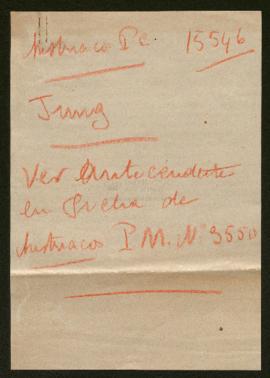 Austriaco Pe 15546
Jung
Ver Antecedentes
en ficha de
Austriacos P.M. Nº 3550